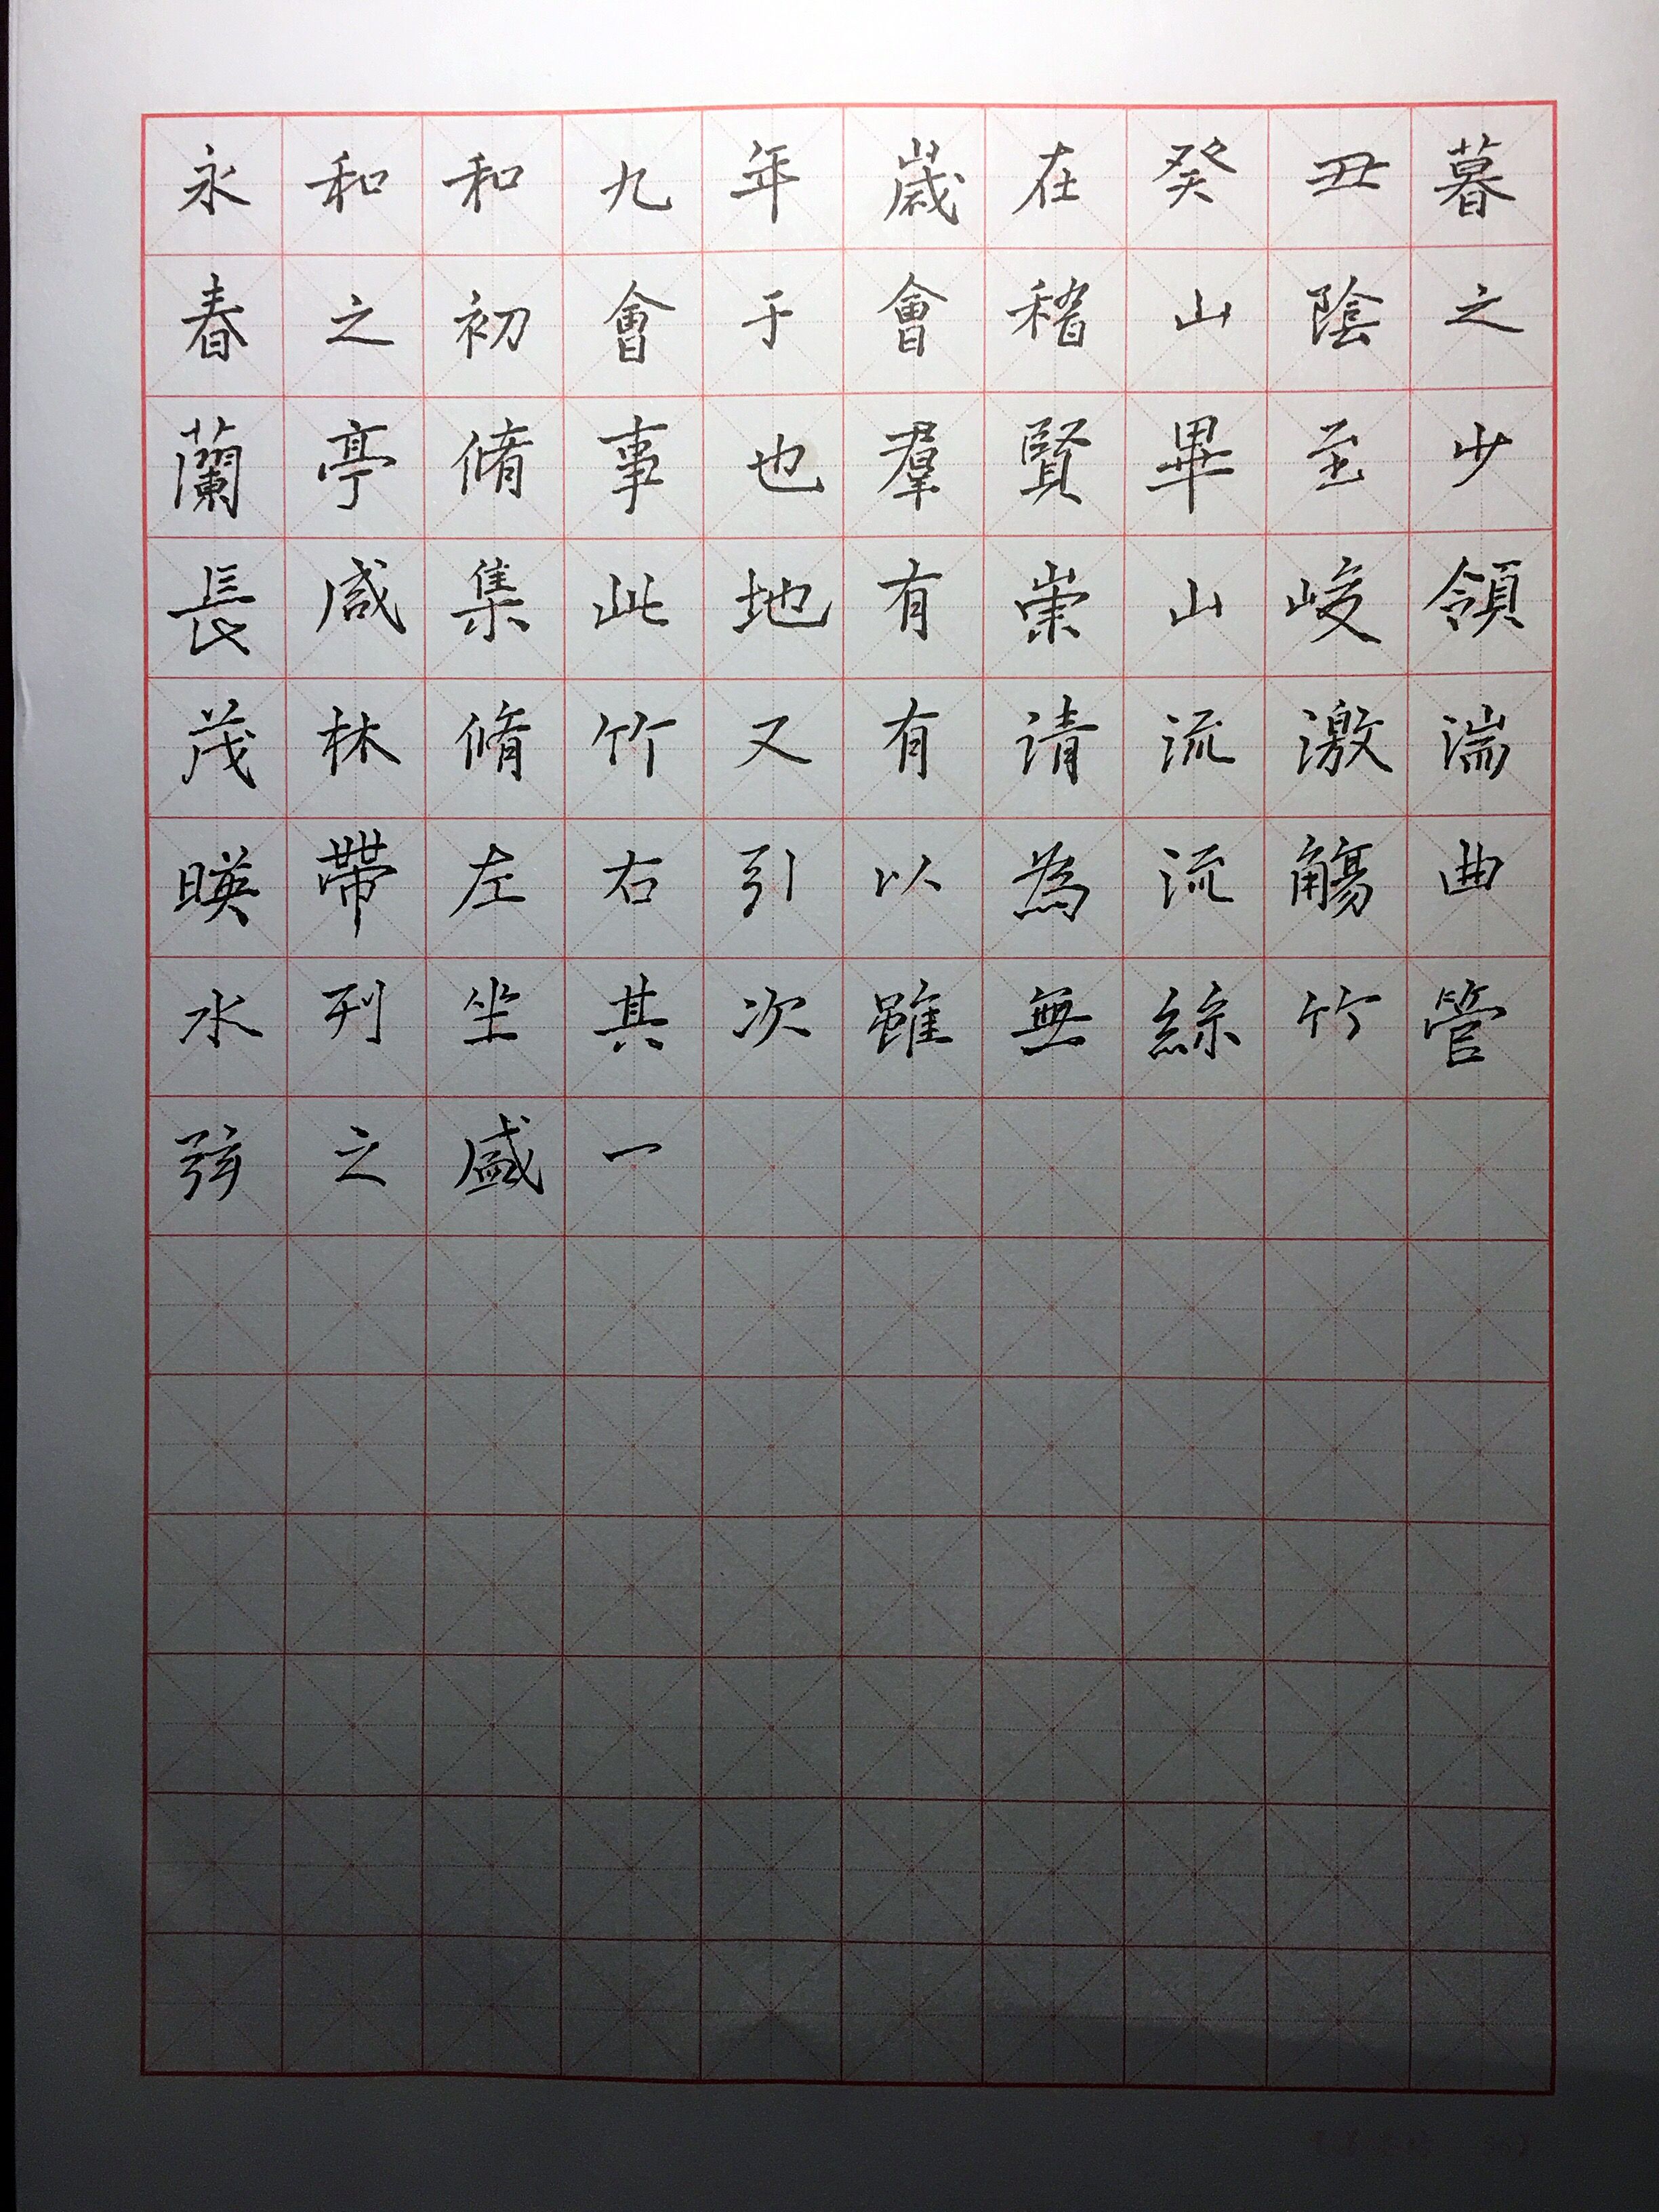 永和和九年歲在癸丑暮
春之初會于會稽山陰之
蘭亭脩事也羣賢畢至少
長咸集此地有崇山峻領
茂林脩竹又有清流激湍
暎帶左右引以為流觴曲
水列坐其次雖無絲竹管
弦之盛一